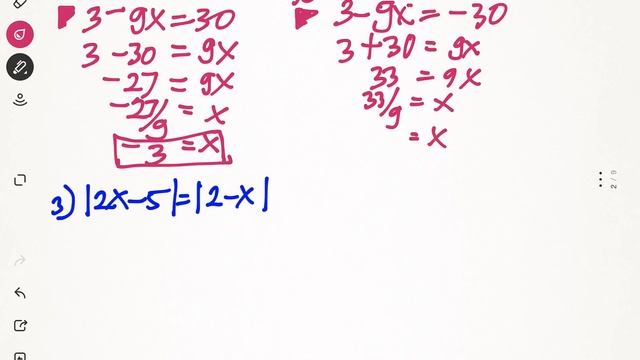 3-9x=30
3-30=9x
-27=9x
-27/9=x
-3=x
3-9x=-30
3+30=9x
33=9x
33/9=x
=x
3) |2x-5|=|2-x|
2/9